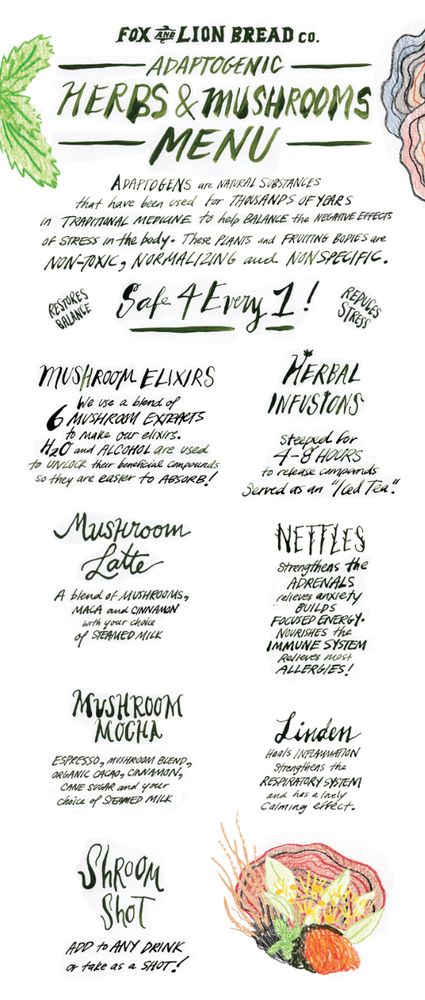 FOX AND LION BREAD CO.
ADAPTOGENIC
HERBS & MUSHROOMS
MENU
ADAPTOGENS are NATURAL SUBSTANCES
that have been used for THOUSANDS OF YEARS
in TRADITIONAL MEDICINE to help BALANCE the NEGATIVE EFFECTS
OF STRESS in the body. These PLANTS and FRUITING BODIES are
NON-TOXIC, NORMALIZING and NONSPECIFIC.
RESTORES
BALANCE
Safe 4 Every 1!
REDUCES
STRESS
MUSHROOM ELIXIRS
We use a blend of
6 MUSHROOM EXTRACTS
to make our elixirs.
H2O and ALCOHOL are used
to UNLOCK their beneficial compounds
so they are easier to ABSORB!
HERBAL
INFUSIONS
steeped for
4-8 HOURS
to release compounds
Served as an "Iced Tea".
Mushroom
Latte
A blend of MUSHROOMS,
MACA and CINNAMON
with your choice
of STEAMED MILK
NETTLES
Strengthens the
ADRENALS
relieves anxiety
BUILDS
FOCUSED ENERGY.
NOURISHES the
IMMUNE SYSTEM
Relieves most
ALLERGIES!
MUSHROOM
MOCHA
ESPRESSO, MUSHROOM BLEND,
ORGANIC CACAO, CINNAMON,
CANE SUGAR and your
choice of STEAMED MILK
Linden
Heals INFLAMMATION
Strengthens the
RESPIRATORY SYSTEM
and has a lovely
Calming effect.
SHROOM
SHOT
ADD to ANY DRINK
or take as a SHOT!